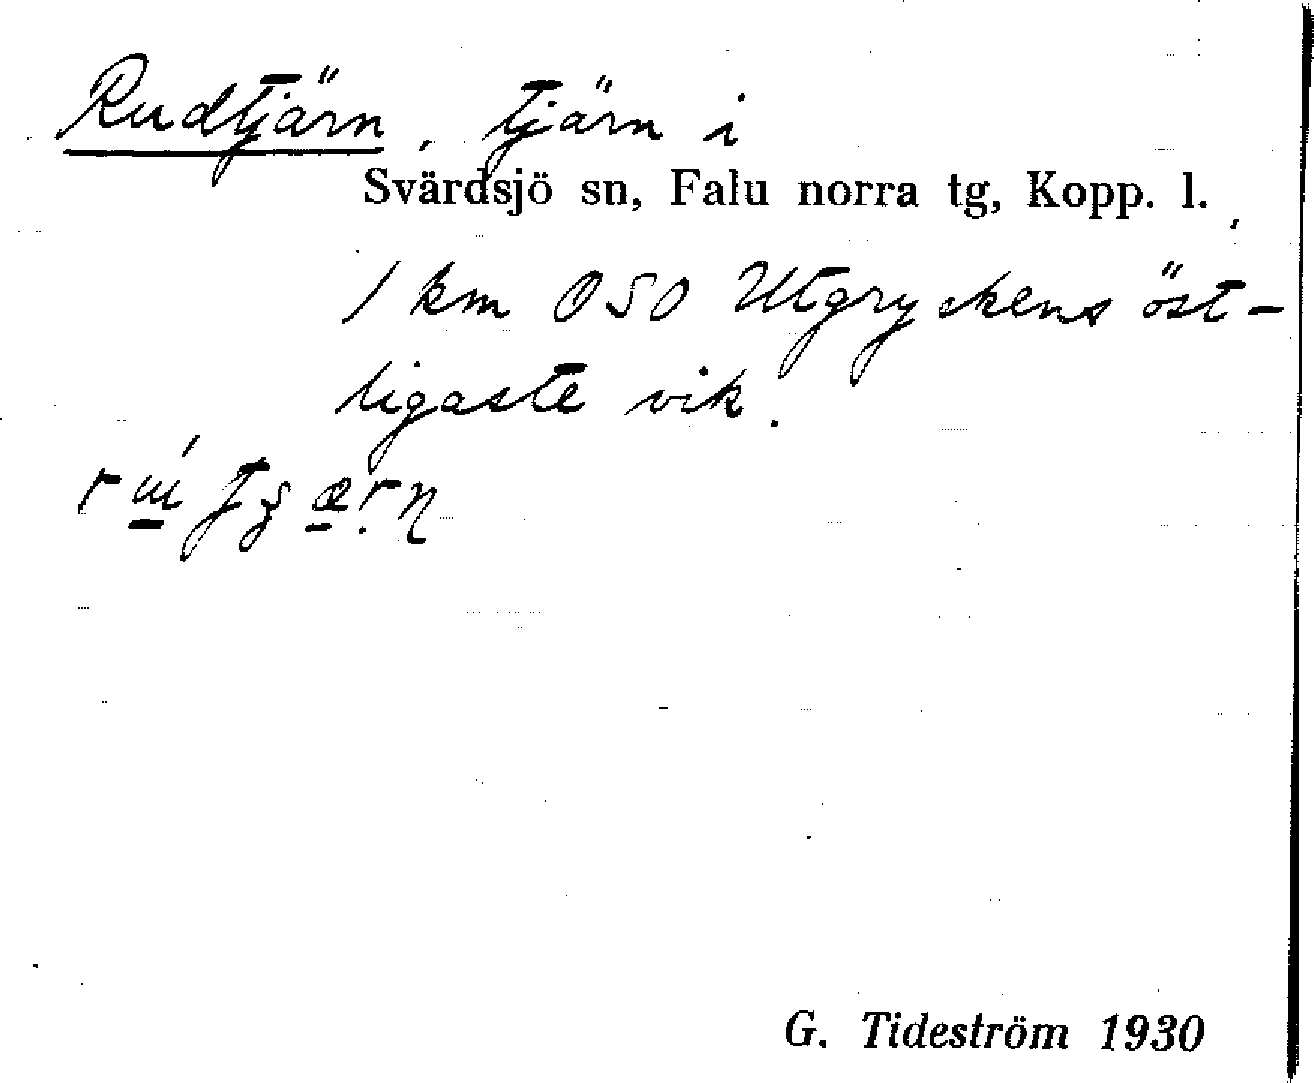 Rudtjärn, tjärn i
Svärdsjö sn, Falu norra tg, Kopp. l.,
1 km OSO Utgryckens öst-
ligaste vik.
G. Tideström 1930